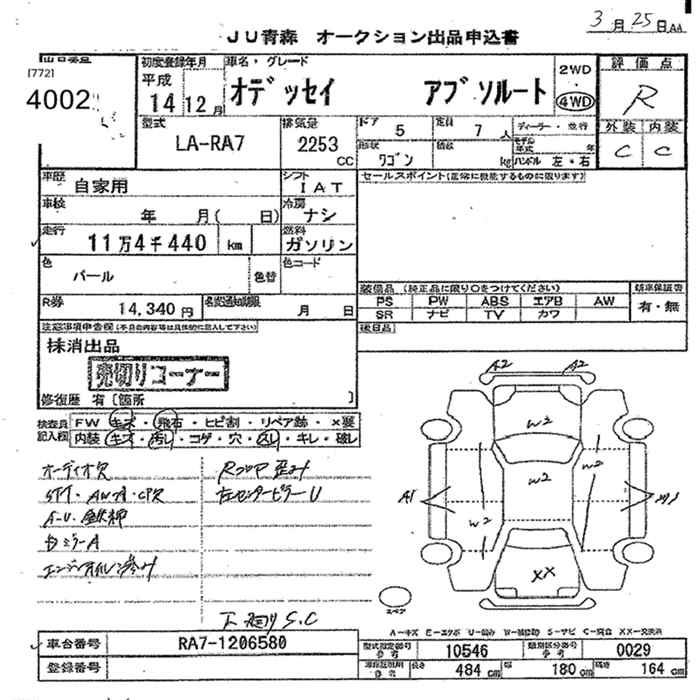 3月25日AA
JU青森 オークション出品申込書
[772]
4002
初度登録年月
平成
14 12月
車名・グレード
オデッセイ アブソルート
2WD
・
4WD
評価点
R
外装 内装
C C
型式
LA-RA7
排気量
2253
CC
ドア 5
定員 7 人
形状 ワゴン
積載 kg
ディーラー・並行
モデル年式 年
ハンドル 左・右
車歴
自家用
シフト
IAT
セールスポイント(正常に機能するものに限ります)
車検
年 月( 日)
冷房
ナシ
走行
11万4千440 km
燃料
ガソリン
色
パール
色替
色コード
R券
14,340円
名変通知期限
月 日
装備品 (純正品に限り○をつけてください)
PS PW ABS エアB AW
SR ナビ TV カワ
新車保証書
有・無
後日品
注意事項申告欄(不具合内容等は具体的に記入して下さい)
抹消出品
売切りコーナー
修復歴 有[箇所 ]
検査員記入欄
FW キズ・飛石・ヒビ割・リペア跡・×要
内装 キズ・汚レ・コゲ・穴・スレ・キレ・破レ
オーディオ欠
Rフロア歪み
左センターピラーU
A2 A2
W2
W2
W2
W2
A1
XX
スペア
下廻りS.C
A-キズ E-エクボ U-凹み W-補修跡 S-サビ C-腐食 XX-交換済
車台番号
RA7-1206580
登録番号
型式指定番号
参考
10546
類別区分番号
参考
0029
車庫証明用
参考
長さ 484cm
幅 180cm
高さ 164cm